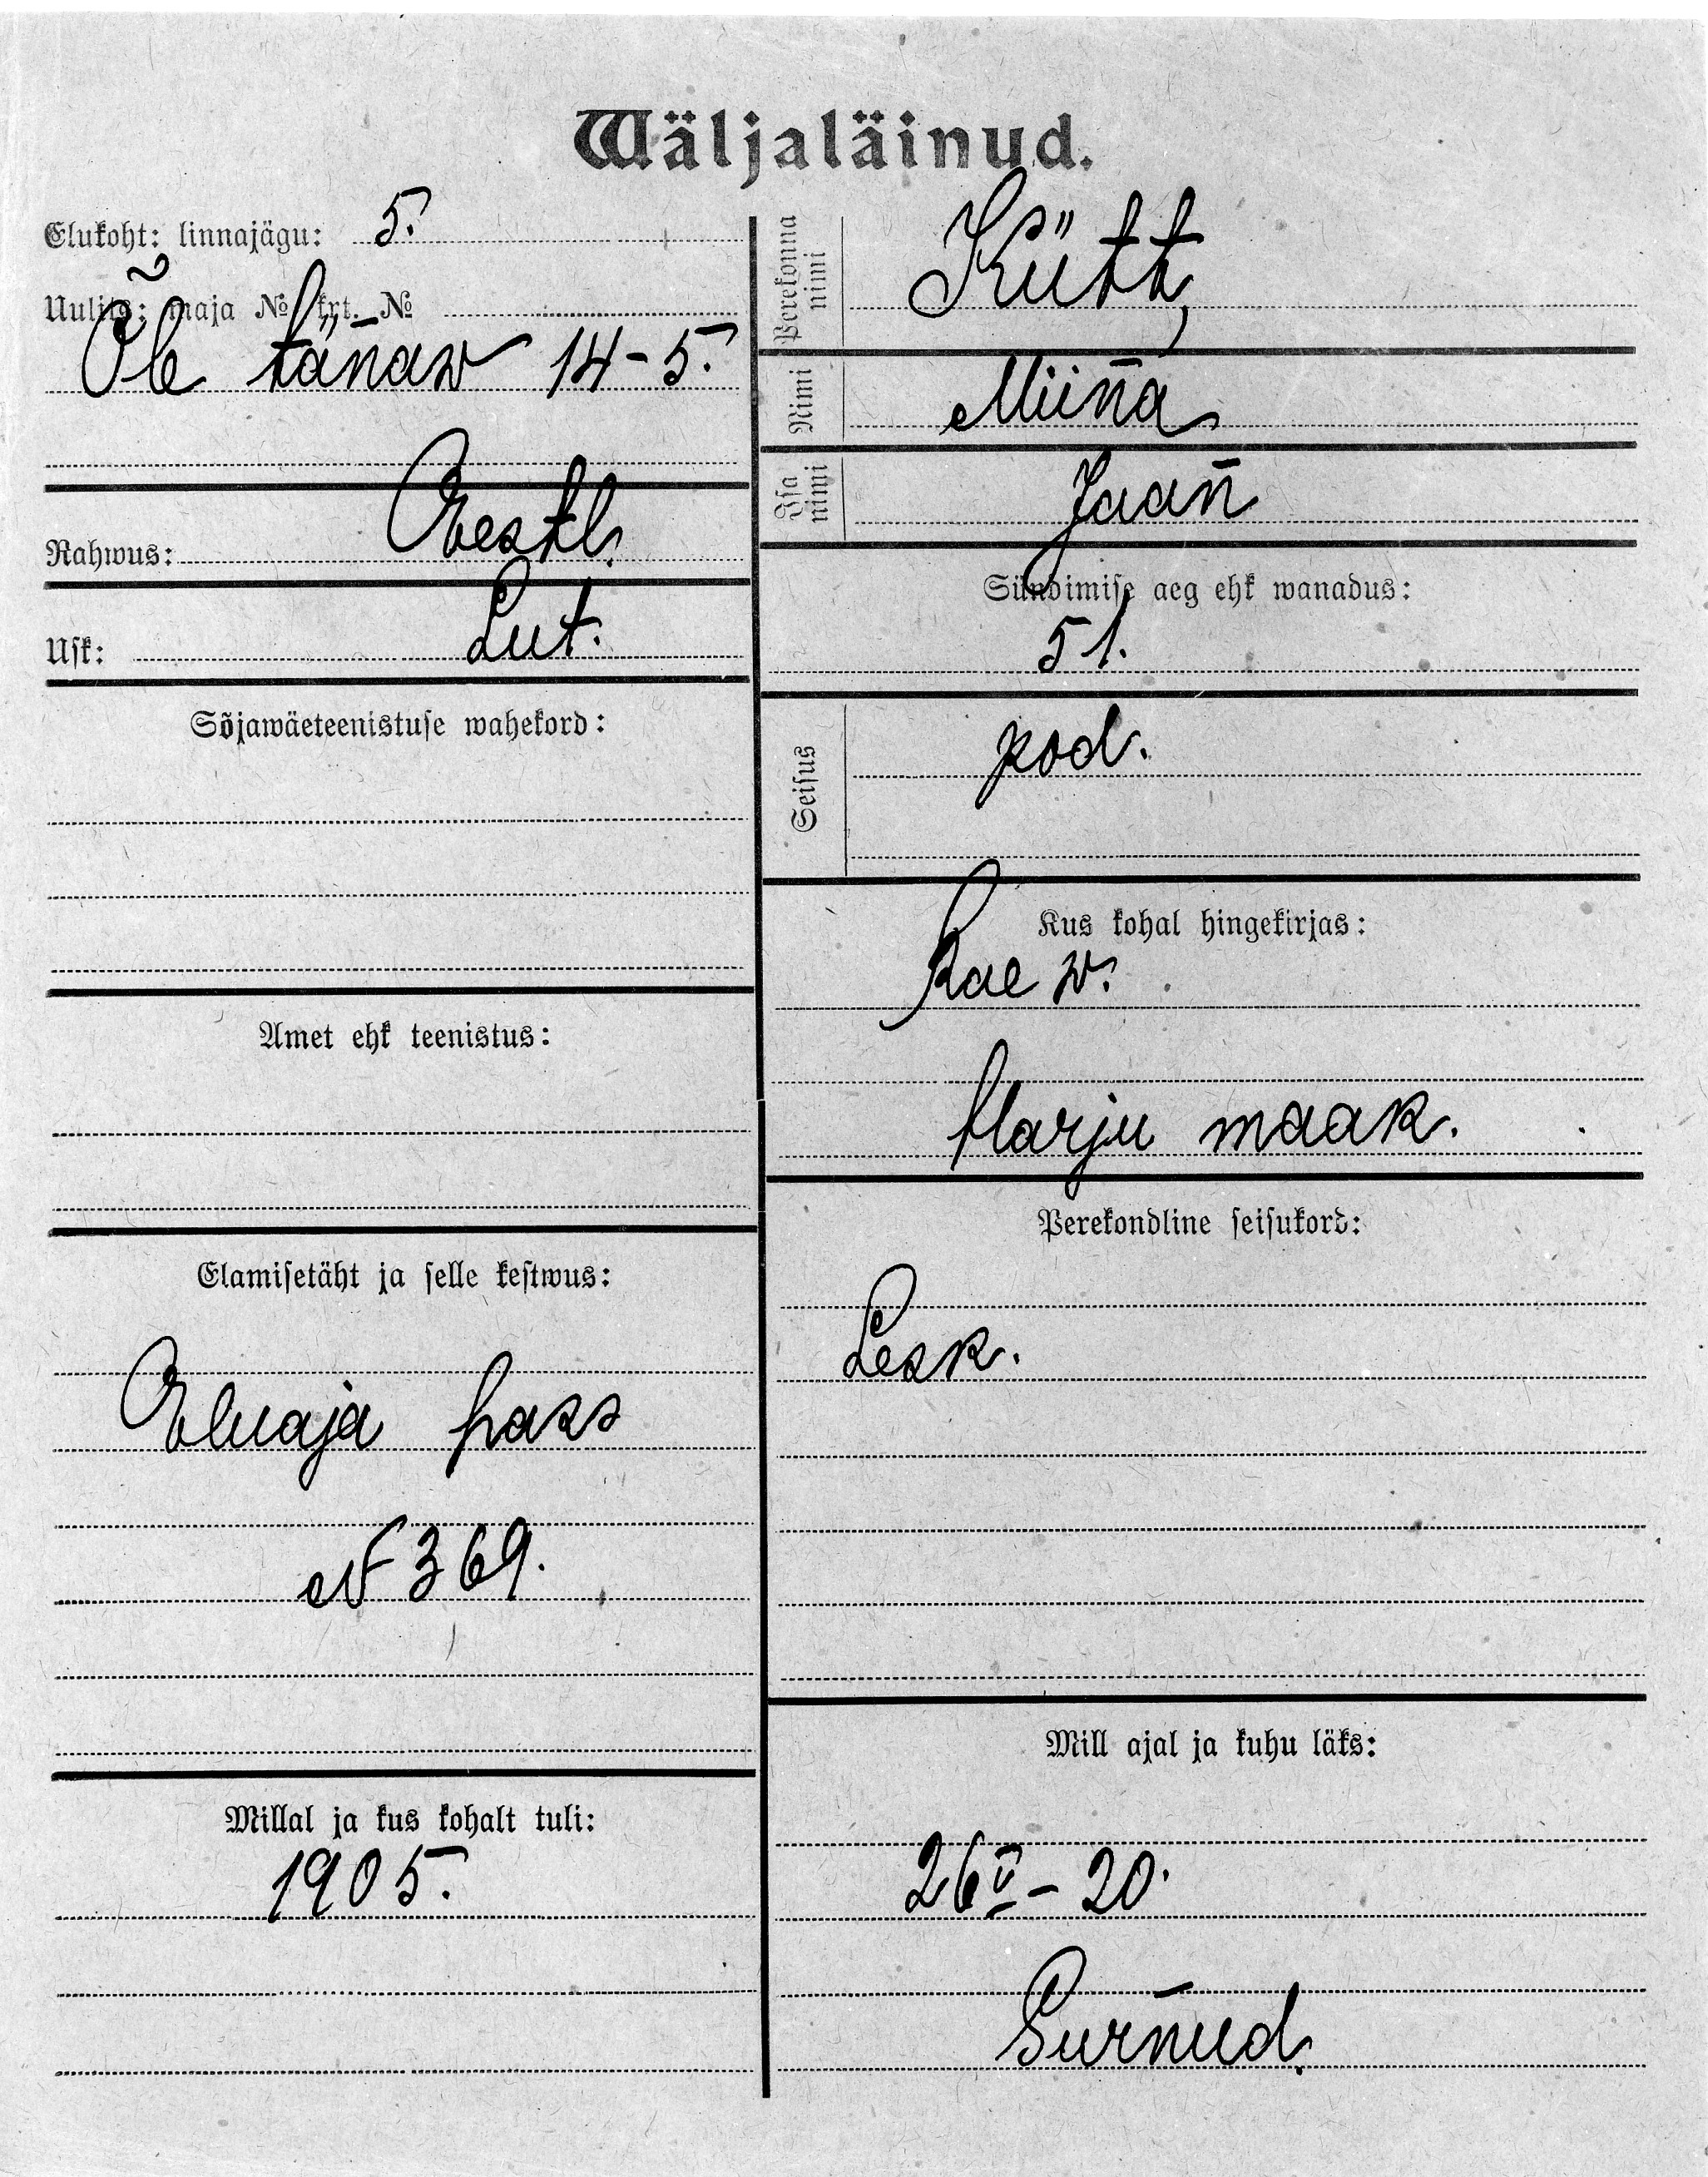 Wäljaläinud.
Elukoht: linnajägu: 5.
Uulits: maja № krt. №
Õle tänaw 14-5.
Rahwus: Eestl.
Usk: Lut.
Sõjawäeteenistuse wahekord:
Amet ehk teenistus:
Elamisetäht ja selle kestwus:
Eluaja pass
№ 369.
Millal ja kus kohalt tuli:
1905.
Perekonna nimi Kütt,
Nimi Miina
Isa nimi Jaan
Sündimise aeg ehk wanadus:
51.
Seisus pod.
Kus kohal hingekirjas:
Rae w.
Harju maak.
Perekondline seisukord:
Lesk.
Mill ajal ja kuhu läks:
26 V - 20.
Surnud.